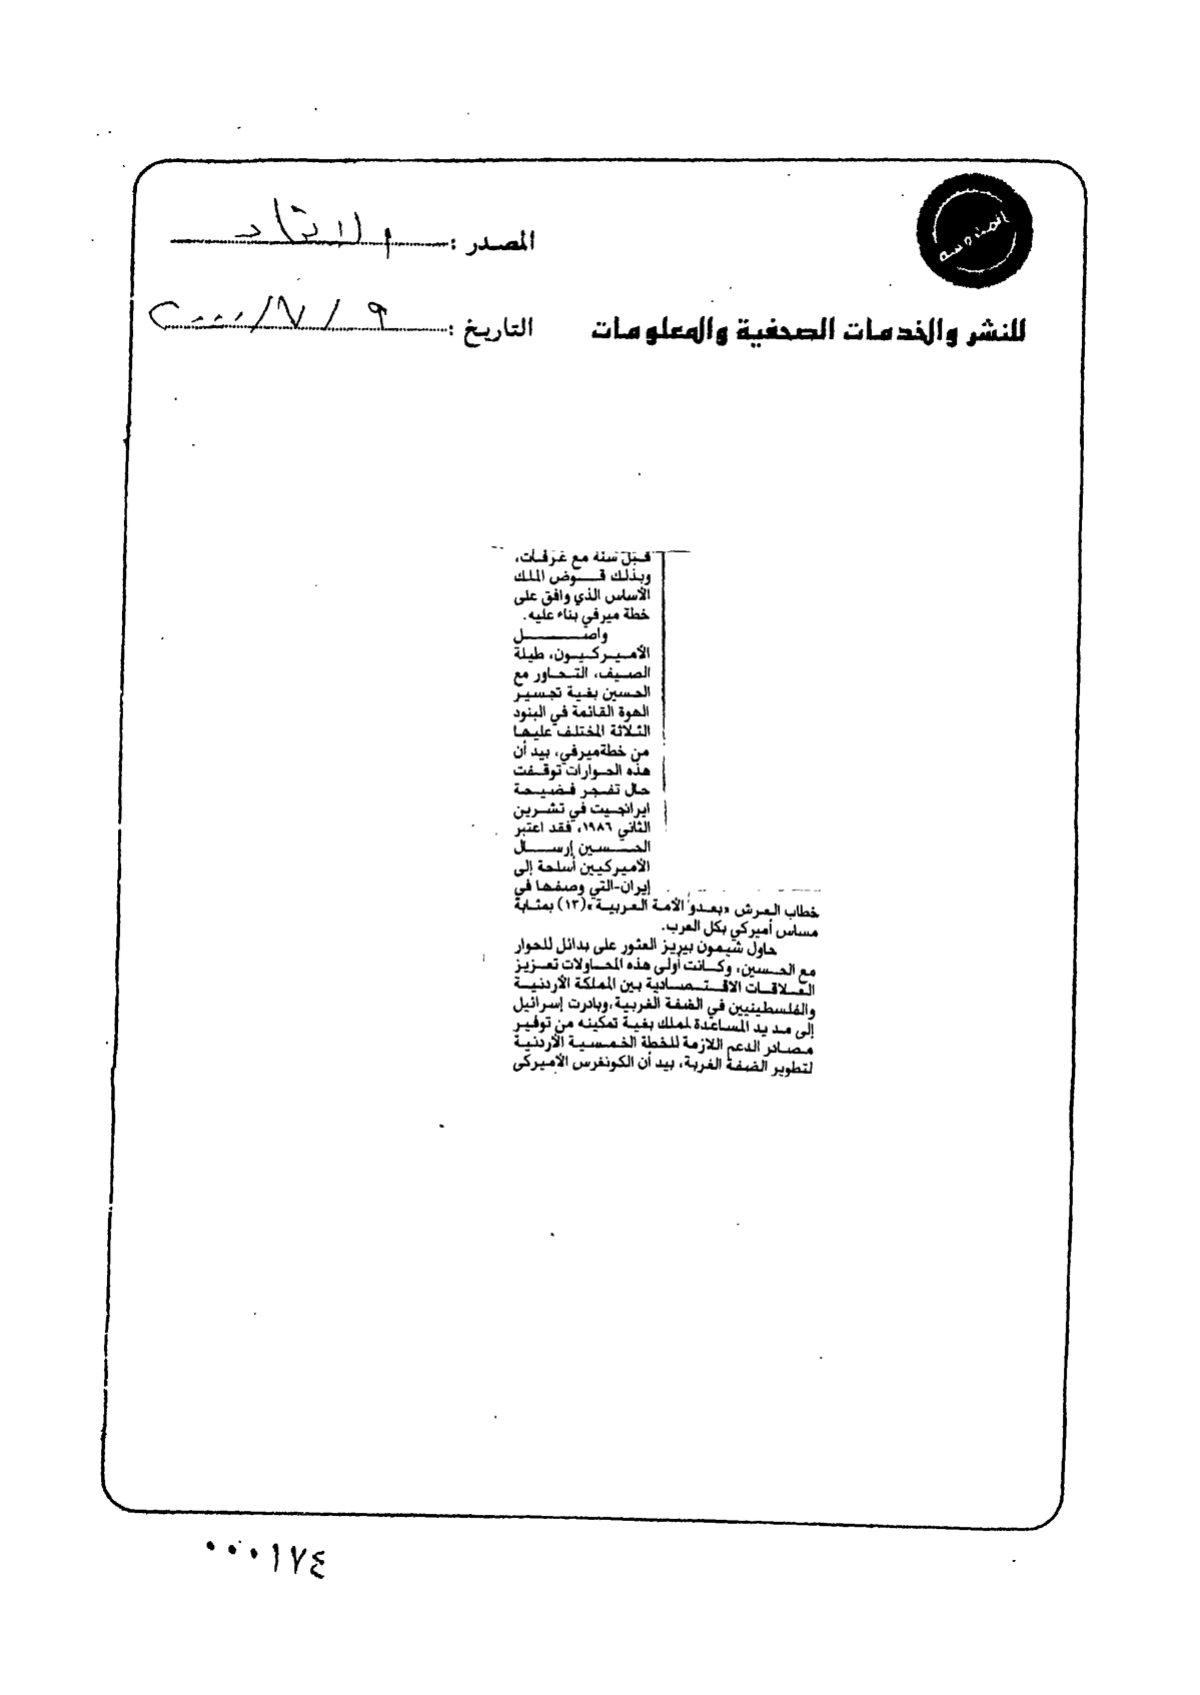 المصدر : الاتحاد
للنشر والخدمات الصحفية والمعلومات
التاريخ : ٩ / ٧ / ٢٠٠٠
قبل سنة مع عرفات،
وبذلك قوض الملك
الأساس الذي وافق على
خطة ميرفي بناء عليه.
واصل
الأميركيون، طيلة
الصيف، التحاور مع
الحسين بغية تجسير
الهوة القائمة في البنود
الثلاثة المختلف عليها
من خطةميرفي، بيد أن
هذه الحوارات توقفت
حال تفجر فضيحة
ايرانجيت في تشرين
الثاني ١٩٨٦، فقد اعتبر
الحسين إرسال
الأميركيين أسلحة إلى
إيران-التي وصفها في
خطاب العرش «بعدو الأمة العربية»(١٣) بمثابة
مساس أميركي بكل العرب.
حاول شيمون بيريز العثور على بدائل للحوار
مع الحسين، وكانت أولى هذه المحاولات تعزيز
العلاقات الاقتصادية بين المملكة الأردنية
والفلسطينيين في الضفة الغربية،وبادرت إسرائيل
إلى مد يد المساعدة لملك بغية تمكينه من توفير
مصادر الدعم اللازمة للخطة الخمسية الأردنية
لتطوير الضفة الغربة، بيد أن الكونغرس الأميركي
٠٠٠١٧٤